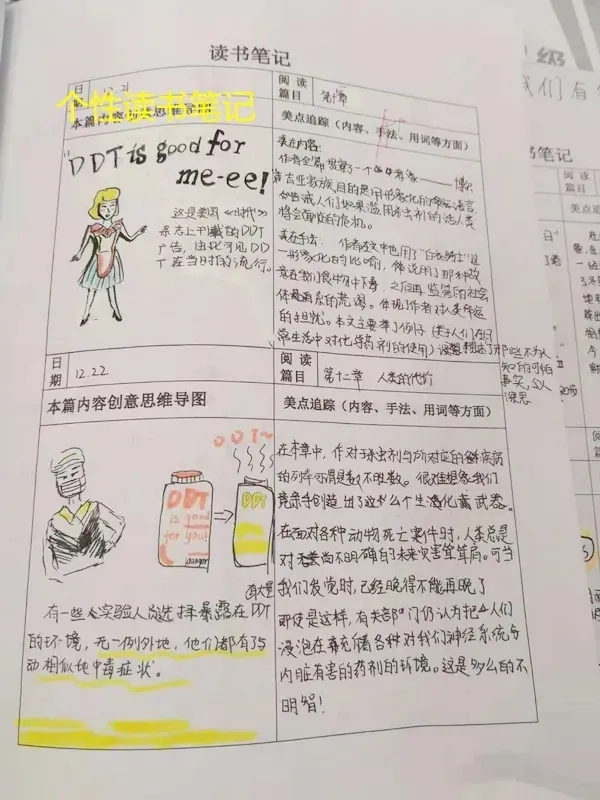 读书笔记
个性读书笔记
日
12.21
阅读
篇目
第十章
本篇内容创意思维导图
美点追踪(内容、手法、用词等方面)
"DDT is good for
me-ee!
这是美国《时代》
杂志上刊载的DDT
广告,由此可见DD
T在当时的流行。
美在内容:
作者全篇贯穿了一个
吉亚家族,目的是用形象化的
告诫人们如果滥用杀虫剂的话人类
将会面临的危机。
美在手法:作者在文中也用了"白衣骑士"这
一形象化的比喻,
意在我们食物中下毒,之后再监管的社会
体系的荒谬。体现了作者对人类命运
的担忧。本文主要举了例子(关于人们在日
常生活中对化学药剂的使用)
那些不为人
知的可怕
事实,令人
深思
日
期
12.22
阅读
篇目
第十二章 人类的代价
本篇内容创意思维导图
美点追踪(内容、手法、用词等方面)
DDT~
DDT
is good
for you!
danger
DDT
有一些人实验人员选择暴露在
有大量
DDT
的环境,无一例外地,他们都有了
动相似地中毒症状。
在本章中,作对于杀虫剂与所对应的
疾病
的列举可谓是数不胜数。很难想象我们
竟亲手创造出了这么个生活化毒武器。
在面对各种动物死亡案件时,人类总是
对
尚不明确的未来灾害耸耸肩。可当
我们发觉时,已经晚得不能再晚了
即使是这样,有关部门仍认为把人们
浸泡在充储各种对我们神经系统与
内脏有害的药剂的环境。这是多么的不
明智!
级
我们有
书笔记
阅
篇目
美点